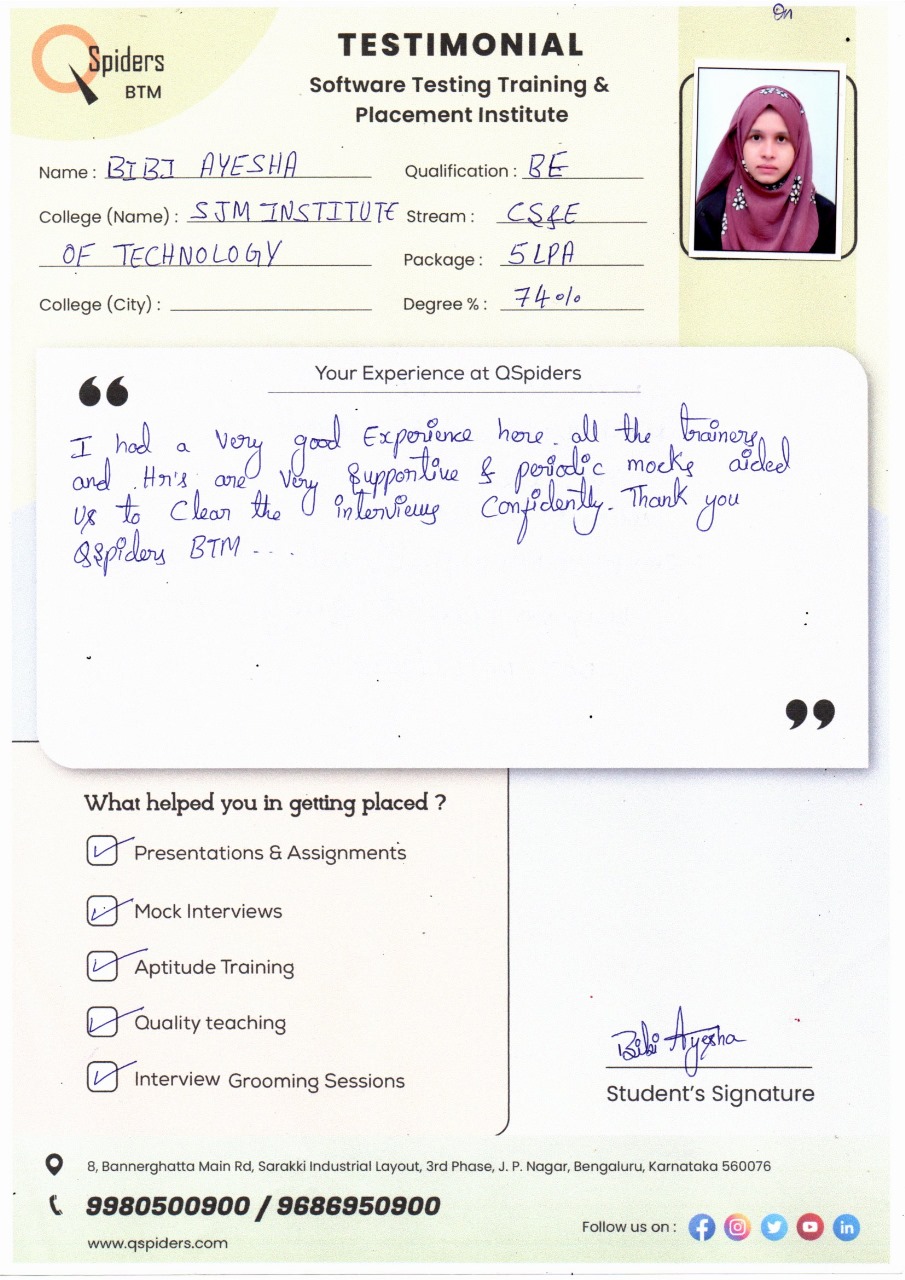 On
QSpiders
BTM
TESTIMONIAL
Software Testing Training &
Placement Institute
Name : BIBI AYESHA
Qualification : BE
College (Name) : SJM INSTITUTE
Stream : CS&E
OF TECHNOLOGY
Package : 5 LPA
College (City) :
Degree % : 74%
Your Experience at QSpiders
I had a very good Experience here. all the trainers
and Hr's are very supportive & periodic mocks aided
us to Clear the interviews Confidently. Thank you
QSpiders BTM - . . .
What helped you in getting placed ?
Presentations & Assignments
Mock Interviews
Aptitude Training
Quality teaching
Interview Grooming Sessions
Bibi Ayesha
Student's Signature
8, Bannerghatta Main Rd, Sarakki Industrial Layout, 3rd Phase, J. P. Nagar, Bengaluru, Karnataka 560076
9980500900 / 9686950900
www.qspiders.com
Follow us on :